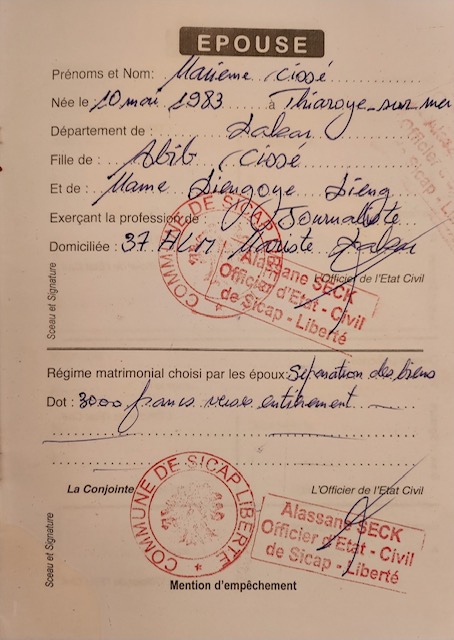 EPOUSE
Prénoms et Nom: Marieme Cissé
Née le 10 mai 1983 à Thiaroye-sur-mer
Département de : Dakar
Fille de : Abib Cissé
Et de : Mame Diengoye Dieng
Exerçant la profession de : Journaliste
Domiciliée : 37 HLM Mariste Dakar
L'Officier de l'Etat Civil
COMMUNE DE SICAP
Alassane SECK
Officier d'Etat - Civil
de Sicap - Liberté
Sceau et Signature
Régime matrimonial choisi par les époux: Séparation des biens
Dot : 3000 francs verses entièrement
La Conjointe L'Officier de l'Etat Civil
COMMUNE DE SICAP LIBERTE
Alassane SECK
Officier d'Etat - Civil
de Sicap - Liberté
Sceau et Signature
Mention d'empêchement